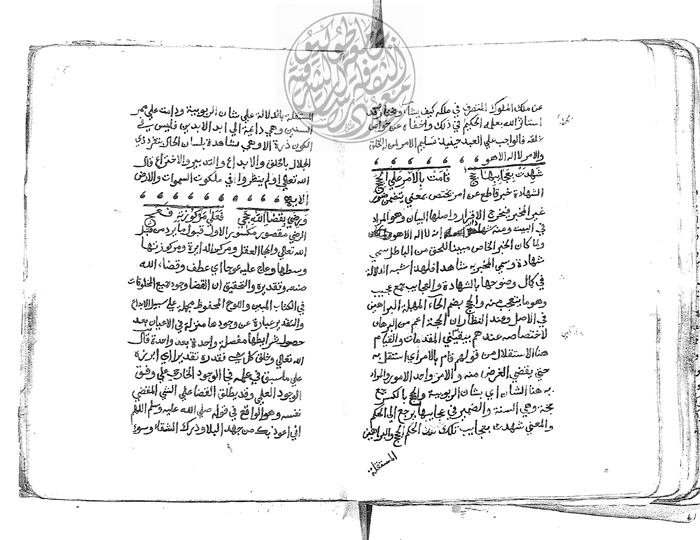 عن ملك الملوك المتفرق في ملكه كيف يشاء ويختار قد
استأثر الله بعلمه الحكيم في ذلك واخفاه عن خواص
خلقه فالواجب على العبد حينئذ تسليم الامر من الخلق
والامر لاله الا هو
شهدت بعجايبها حجج قامت بالامر على الحجج
الشهادة خبر قاطع عن امر يختص بمعنى يتضمن ضرر
غير المخبر فيخرج الاقرار واصلها البيان وهو المراد
في البيت ومنه شهد الله انه لا اله الا هو
ولما كان الخبر الخاص مبينا للحق من الباطل سمي
شهادة وسمي المخبر به شاهدا فلهذا اشبه الدلالة
في كمال وضوحها بالشهادة والعجايب جمع عجيب
وهو ما يتعجب منه والحجج بضم الحاء المهملة البراهين
في الاصل وعند النظار ان الحجة اعم من البرهان
لاختصاصه عندهم بيقيني المقدمات والقيام
هنا الاستقلال من قولهم قام بالامر اي استقل به
حتى يقتضي الغرض منه والامر واحد الامور والمراد
به هنا الشان اي بشان الربوبية والحجج بالكسر جمع
حجة وهي السنة والضمير في عجايبها يرجع الى الحكم
والمعنى شهدت بعجايب تلك الحكم الحجج والبراهين
المستقلة
المستقلة بالدلالة على شان الربوبية ودامت على ممر
السنين وهي دايمة الى ابد الابدين فليس في
الكون ذرة الا وهي شاهدة بلسان الحال بتفرد ذي
الجلال بالخلق والابداع والتدبير والاختراع قال
الله تعالى اولم ينظروا في ملكوت السموات والارض
الاية
ورضى بقضا الله حجى فعلى مركوزته فعج
الرضى مقصور مكسور الاول قبول ما يرد من قبل
الله تعالى والحجا العقل ومركز الدايرة ومركوزتها
وسطها وعاج عليه عوجا اي عطف وقضاء الله
صنعه وتقديره والتحقيق ان القضا وجود جميع المخلوقات
في الكتاب المبين واللوح المحفوظ مجملة على سبيل الابداع
والتقدير عبارة عن وجودها منزلة في الاعيان بعد
حصول شرايطها مفصلة واحدة بعد واحدة قال
الله تعالى وخلق كل شيء فقدره تقديرا اي ابرزه
على ما سبق في علمه فما الوجود الخارجي على وفق
الوجود العلمي وقد يطلق القضا على الشي المقضي
نفسه وهو الواقع في قوله صلى الله عليه وسلم اللهم
اني اعوذ بك من جهد البلا ودرك الشقاء وسوء